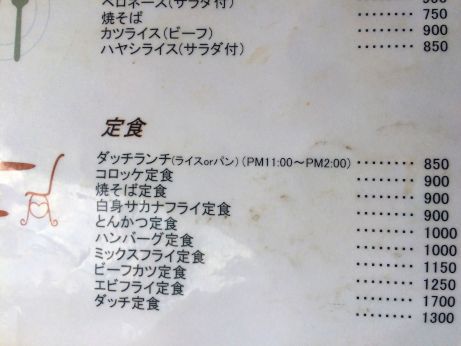 ロネーズ(サラダ付)
焼そば ……… 750
カツライス(ビーフ) ……… 900
ハヤシライス(サラダ付) ……… 850
定食
ダッチランチ(ライスorパン)(PM11:00～PM2:00) ……… 850
コロッケ定食 ……… 900
焼そば定食 ……… 900
白身サカナフライ定食 ……… 900
とんかつ定食 ……… 1000
ハンバーグ定食 ……… 1000
ミックスフライ定食 ……… 1150
ビーフカツ定食 ……… 1250
エビフライ定食 ……… 1700
ダッチ定食 ……… 1300